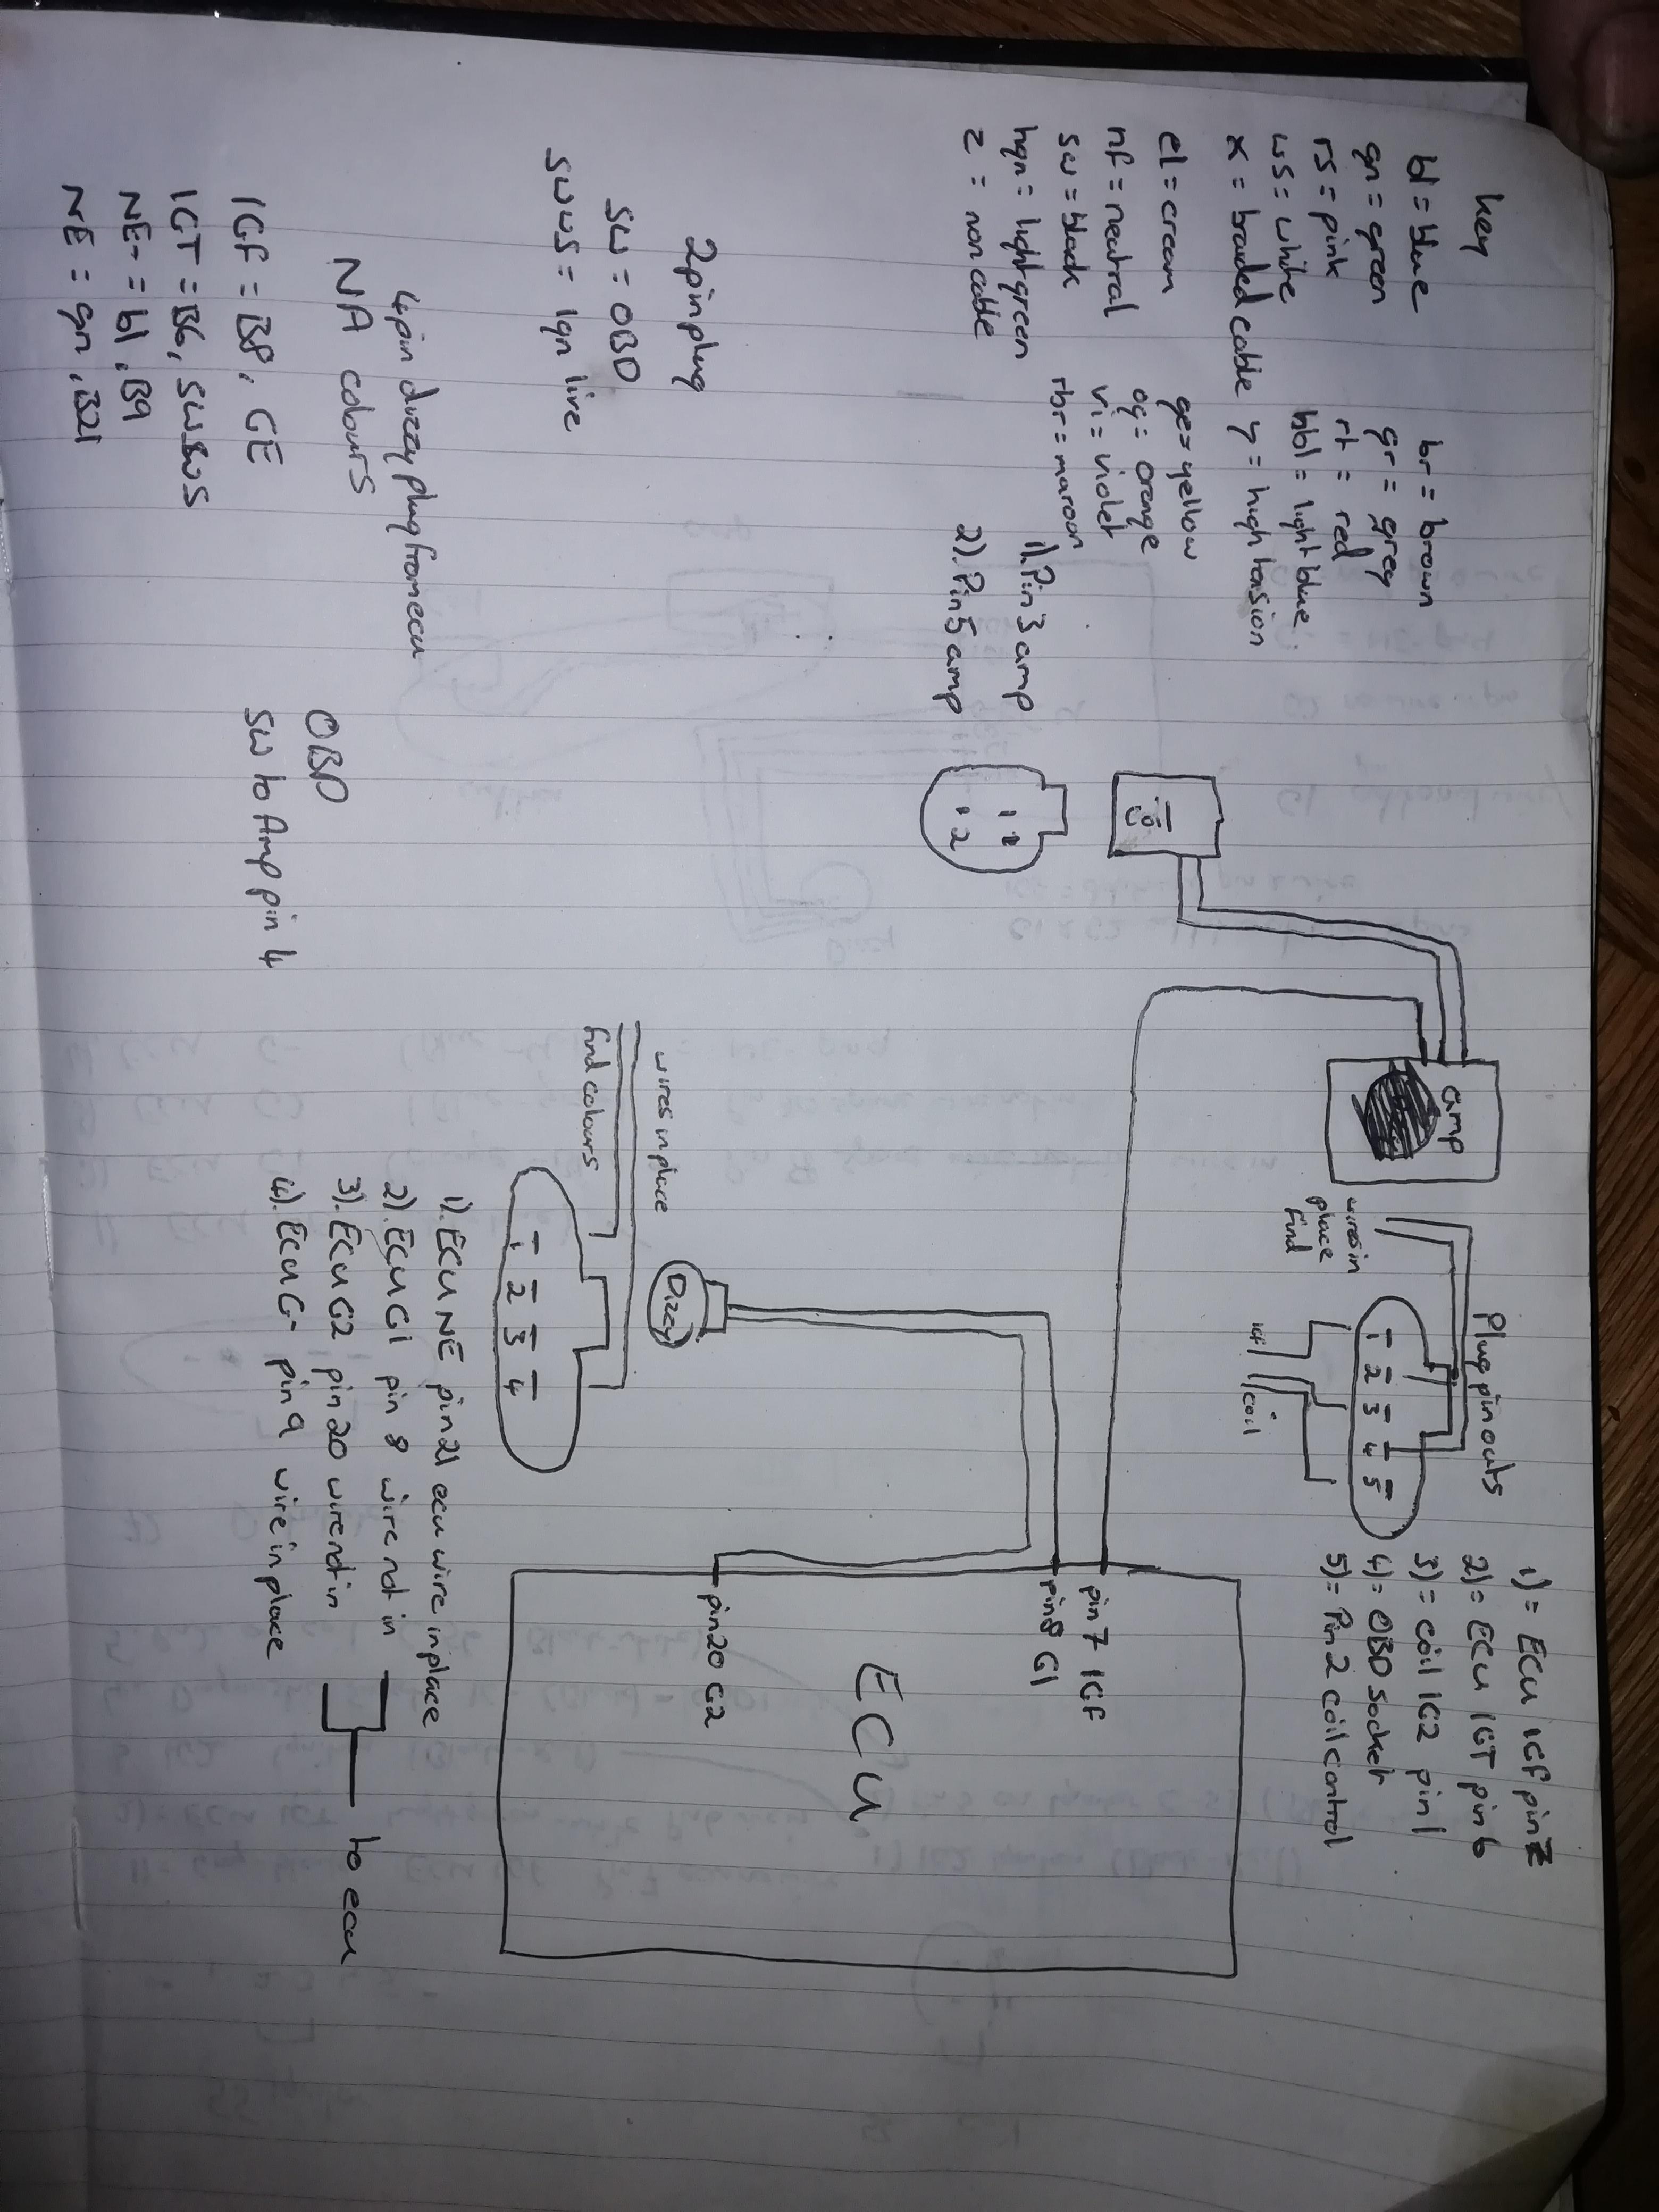 key
bl = blue
gn = green
rs = pink
ws = white
x = braided cable
el = cream
nf = neutral
sw = black
hgn = light green
z = non cable
br = brown
gr = grey
rt = red
hbl = light blue
y = high tension
ge = yellow
og = orange
vi = violet
rbr = maroon
1). Pin 3 amp
2). Pin 5 amp
1 2
2
amp
Plug pin outs
wires in
place
find
1 2 3 4 5
IGF
coil
1) = ECU IGF pin 7
2) = ECU IGT pin 6
3) = coil IG2 pin 1
4) = OBD socket
5) = Pin 2 coil control
2 pin plug
sw = OBD
swws = Ign live
wires in place
find colours
Dizzy
1 2 3 4
ECU
pin 7 IGF
pin 8 G1
pin 20 G2
1). ECU NE pin 21 ecu wire in place
2). ECU G1 pin 8 wire not in
3). ECU G2 pin 20 wire not in
4). ECU G- pin 9 wire in place
to ecu
4 pin dizzy plug from ecu
NA colours
IGF = B8, GE
IGT = B6, SWBWS
NE- = bl, B9
NE = gn, B21
OBD
SW to Amp pin 4